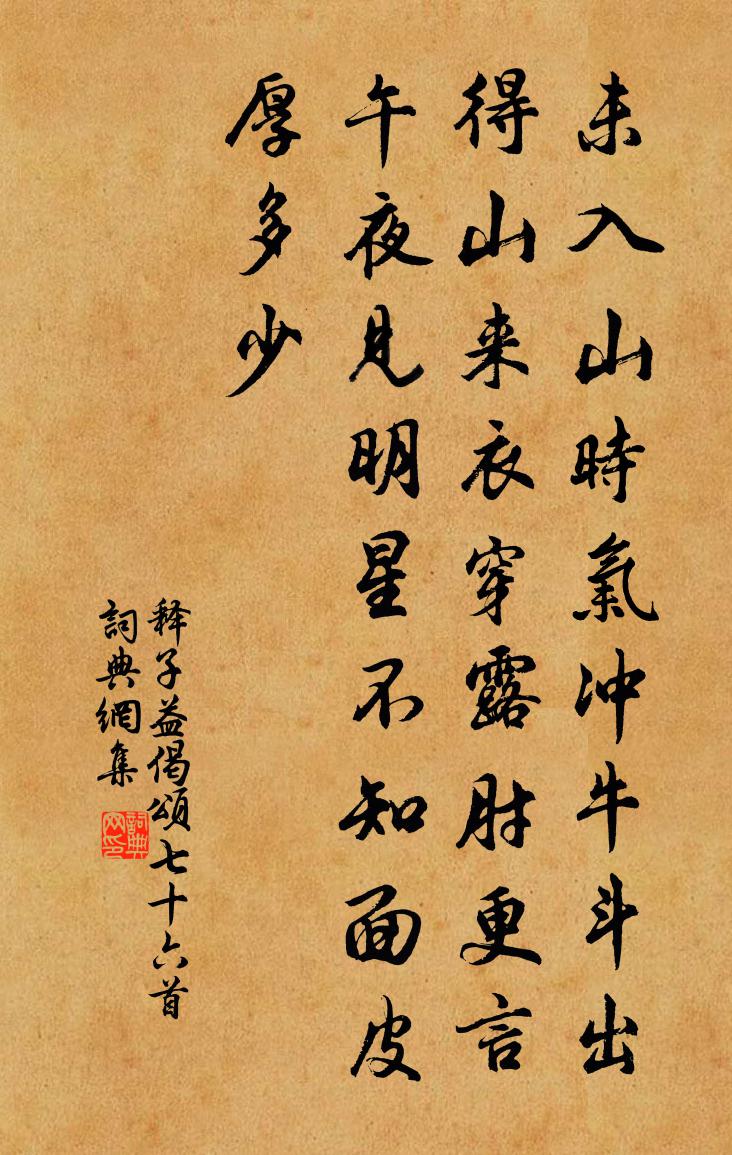 未入山時氣冲牛斗出
得山来衣穿露肘更言
午夜見明星不知面皮
厚多少
释子益偈頌七十六首
詞典網集
詞典
网印